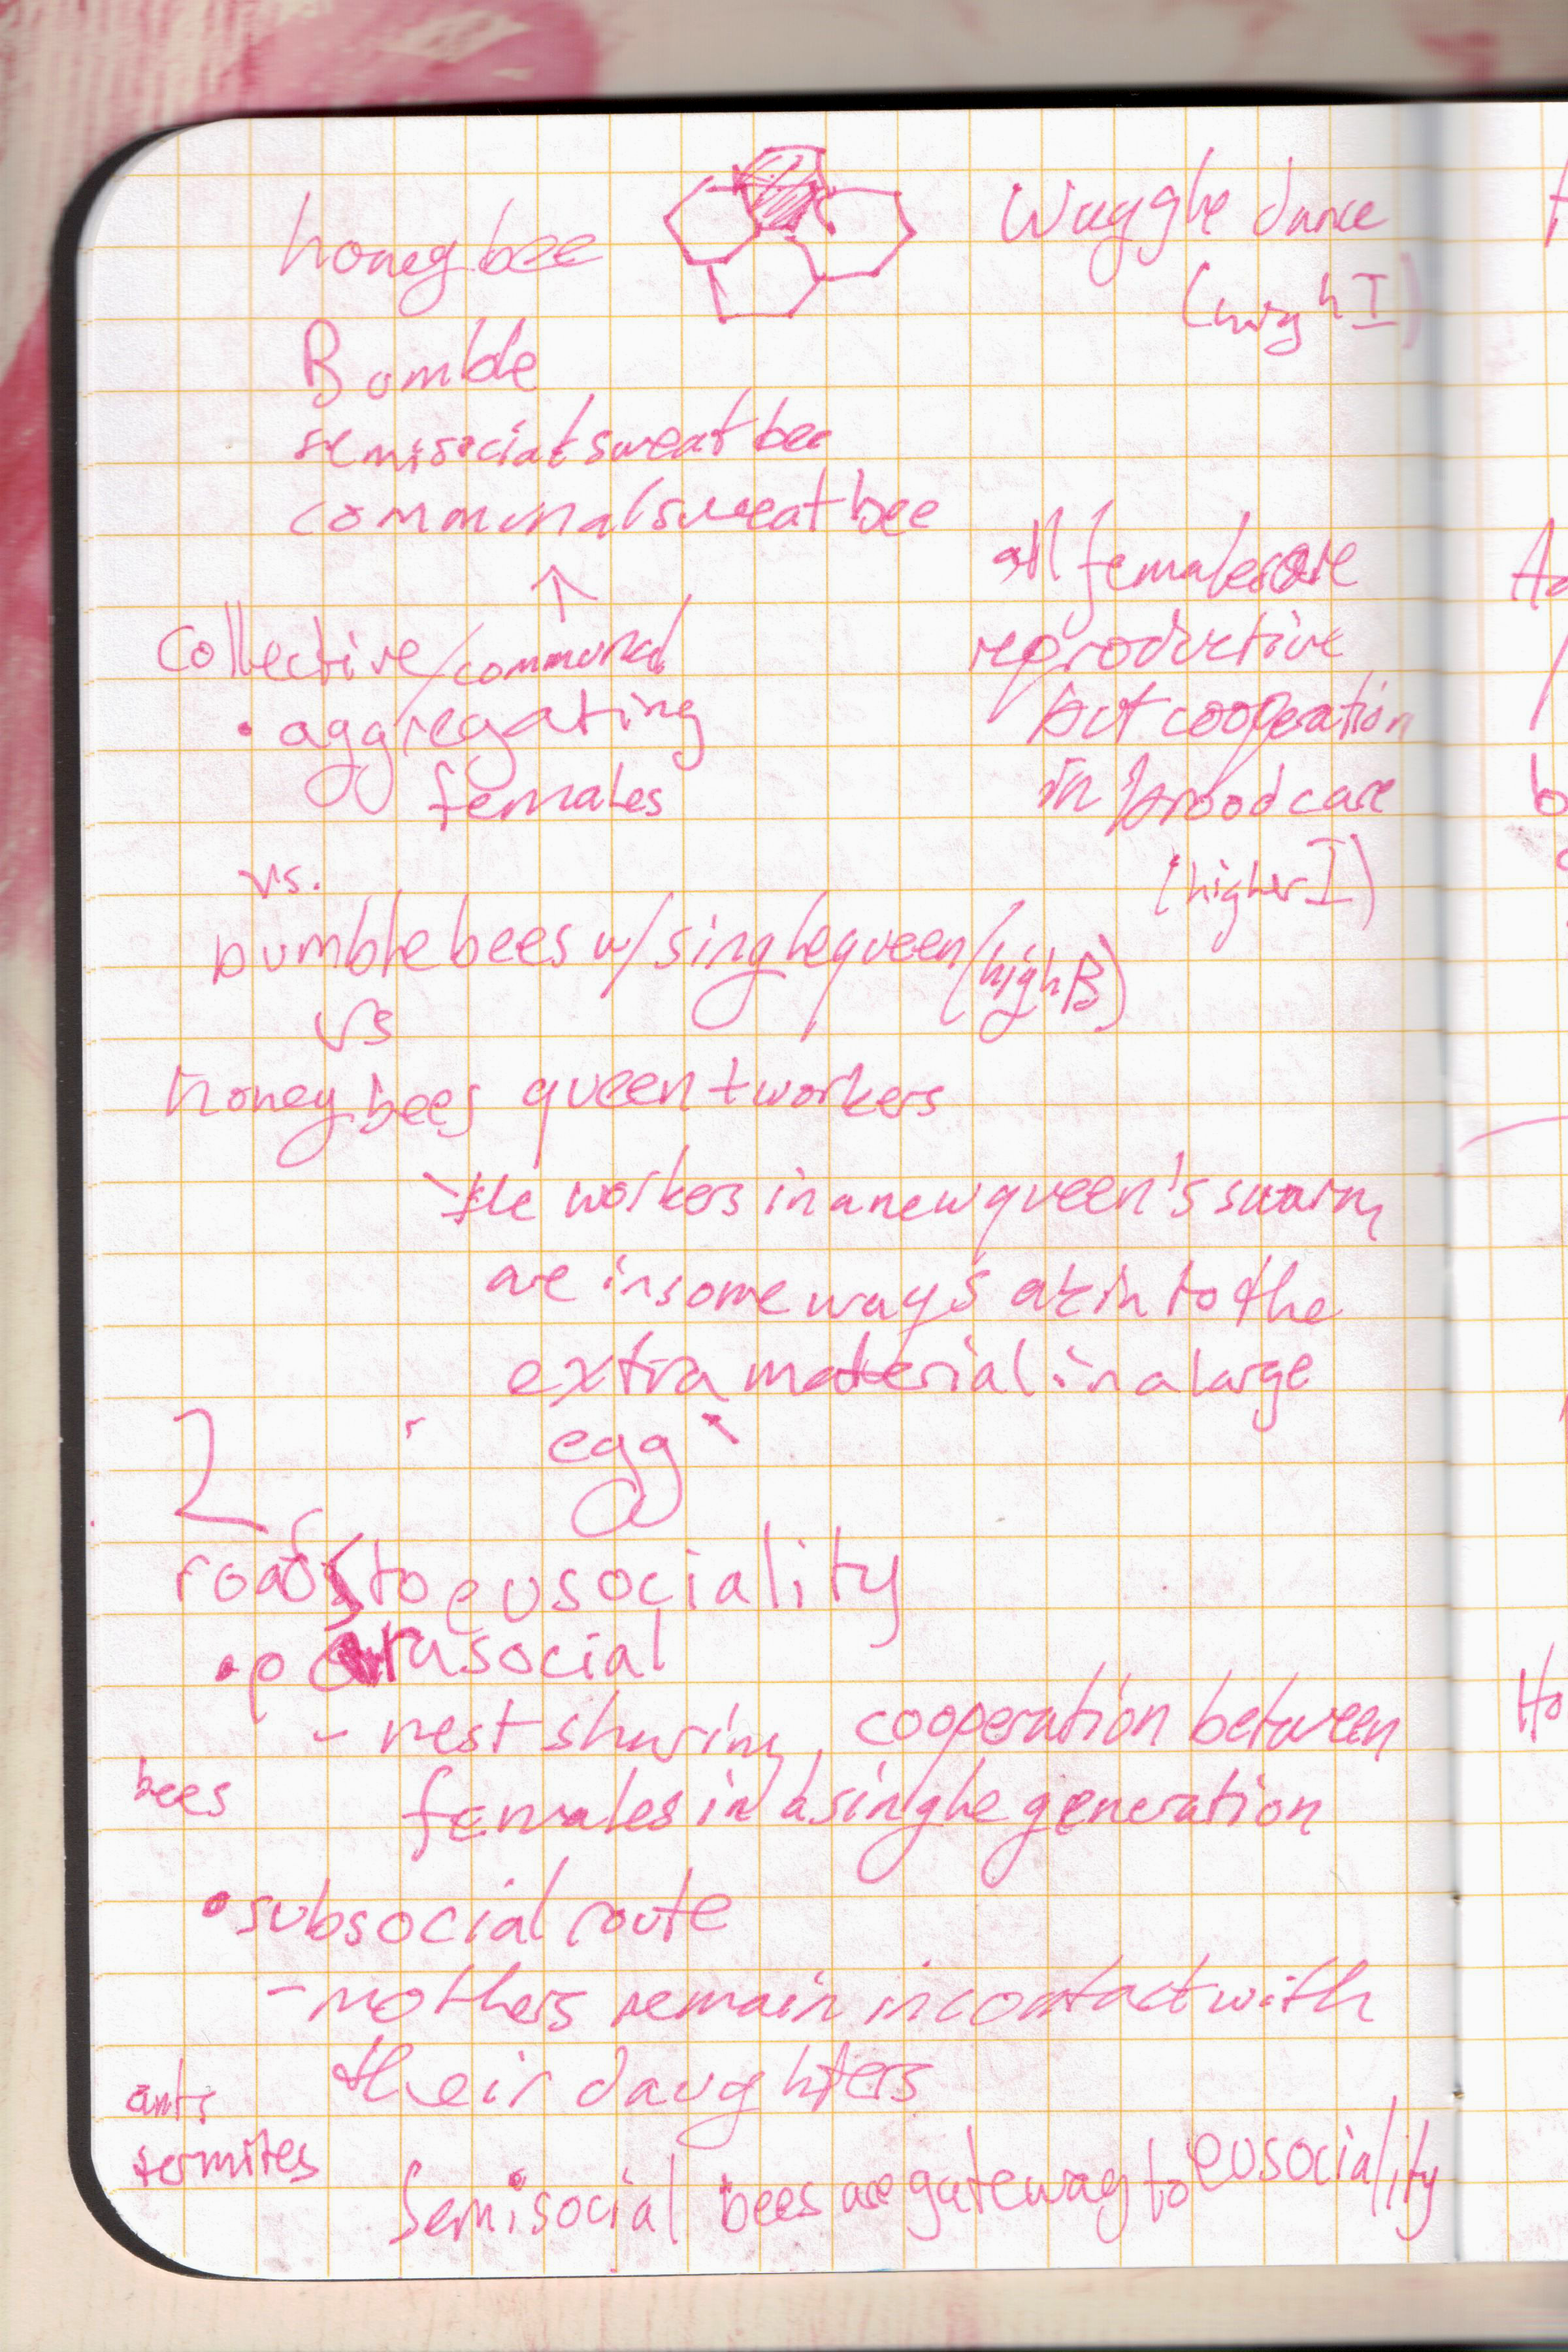 honey bee
Waggle dance
(high I)
Bumble
semisocial sweat bee
communal sweat bee
↑
all females are
reproductive
but cooperation
in brood care
(higher I)
collective/communal
• aggregating
females
vs.
bumble bees w/ single queen (high B)
vs
honey bees queen + workers
the workers in a new queen's swarm
are in some ways akin to the
extra material in a large
egg
2
roads to eusociality
• parasocial
- nest sharing, cooperation between
bees
females in a single generation
• subsocial route
- mothers remain in contact with
their daughters
ants
termites
Semisocial bees are gateway to eusociality
Ho